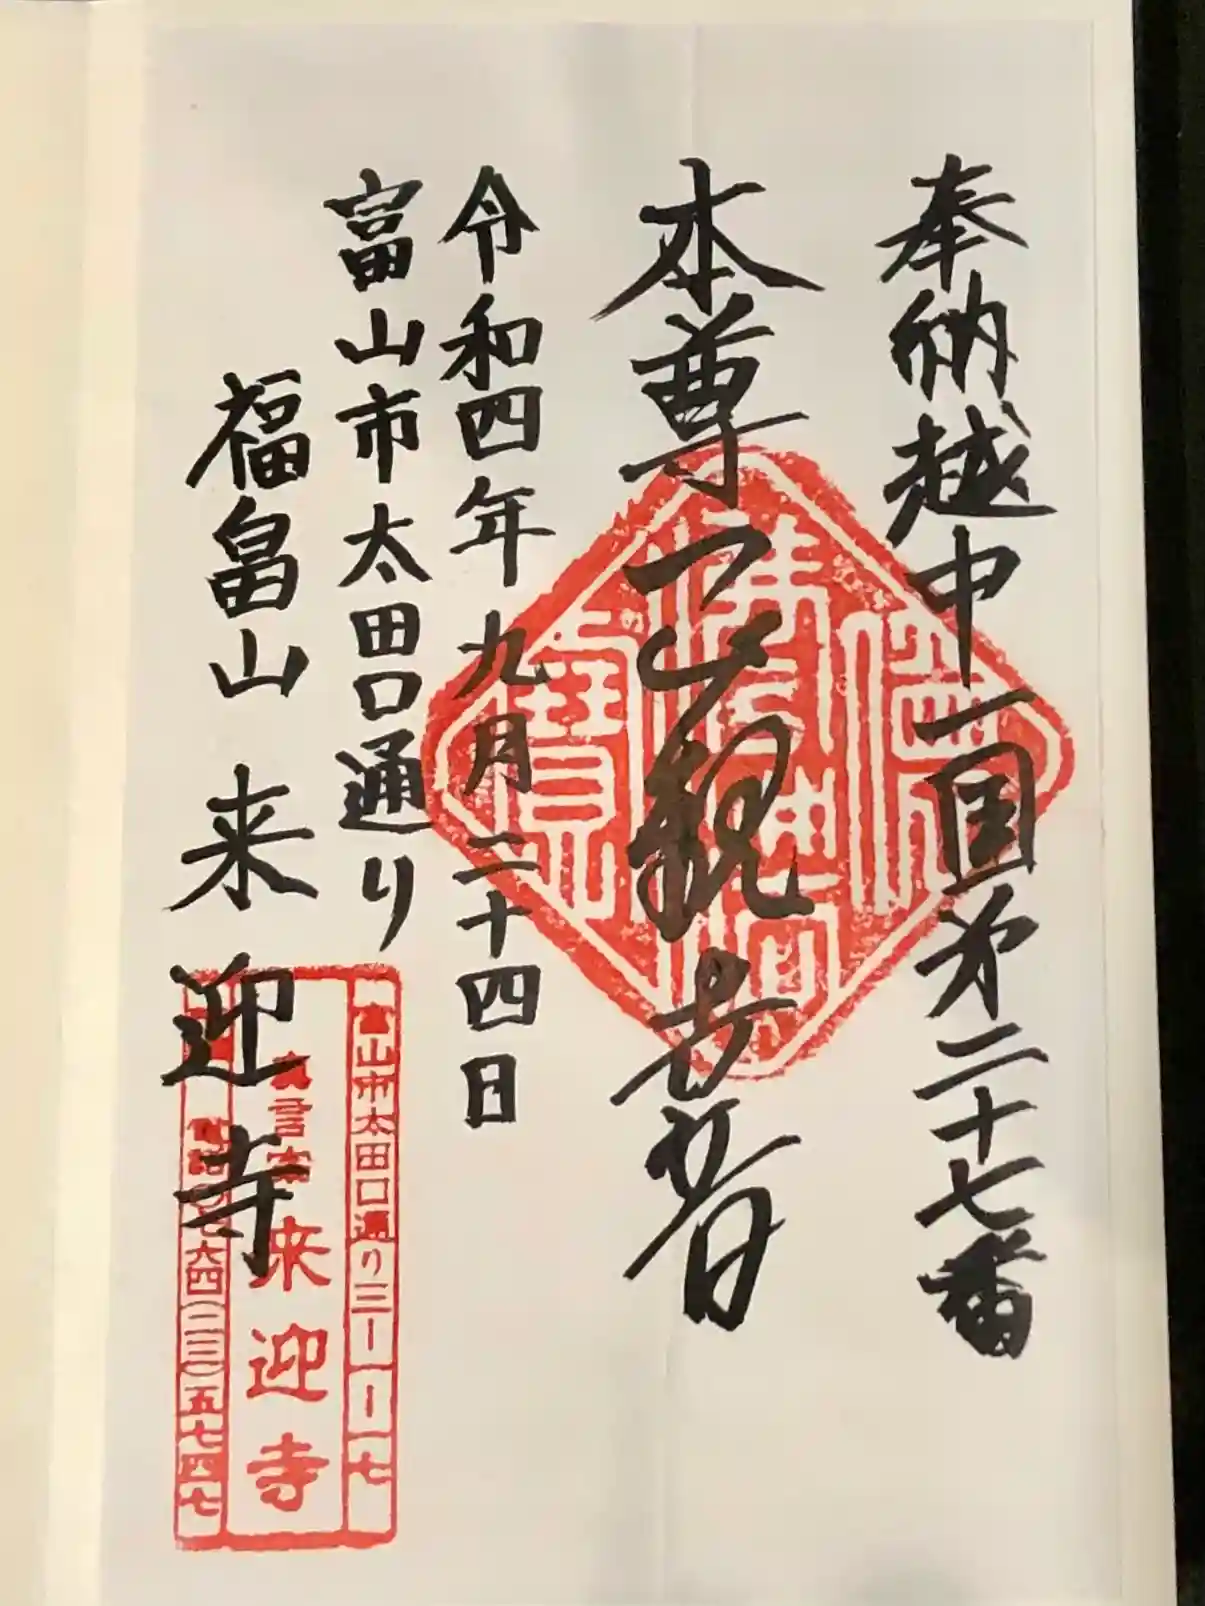 奉納越中一国第二十七番
本尊 正観世音
令和四年九月二十四日
富山市太田口通り
福畠山 来迎寺
富山市太田口通り三ー一ー七
真言宗 来迎寺
電話〇七六四(二三)五七四七